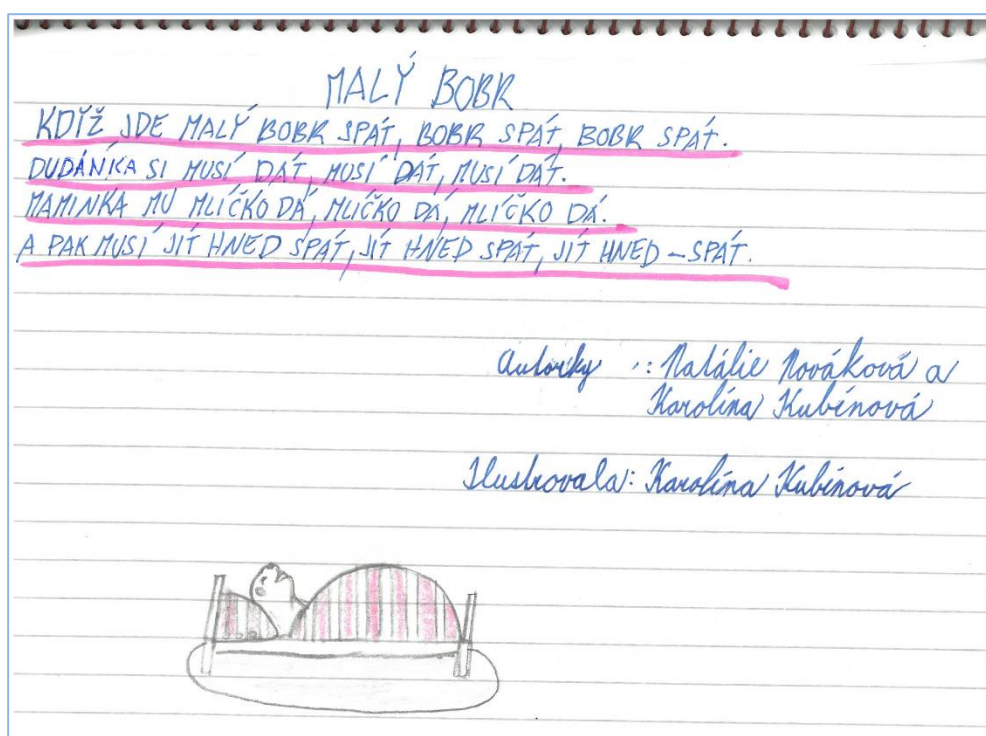 MALÝ BOBR
KDÝŽ JDE MALÝ BOBR SPÁT, BOBR SPÁT, BOBR SPÁT.
DUDÁNKA SI MUSÍ DÁT, MUSÍ DÁT, MUSÍ DÁT.
MAMINKA MU MLÍČKO DÁ, MLÍČKO DÁ, MLÍČKO DÁ.
A PAK MUSÍ JÍT HNED SPÁT, JÍT HNED SPÁT, JÍT HNED – SPÁT.
Autorky : Natálie Nováková a
Karolína Kubínová
Ilustrovala: Karolína Kubínová